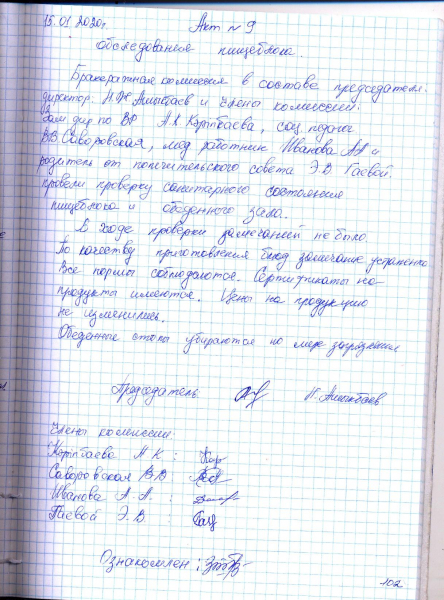 15.01.2020г. Акт №9
обследования пищеблока.
Бракеражная комиссия в составе председателя:
директор: Н.Ж Ашыкбаев и члены комиссии:
Зам дир по ВР А.К Карпбаева, соц. педагог
В.В.Саворовская, мед работник Иванова А.А и
родитель от попечительского совета Э.В Гаевой.
провели проверку санитарного состояния
пищеблока и обеденного зала.
В ходе проверки замечаний не было.
По качеству приготовления блюд замечание устранено
Все нормы соблюдаются. Сертификаты на
продукты имеются. Цены на продукцию
не изменились.
Обеденные столы убираются по мере загрязнения
Председатель Н. Ашыкбаев
Члены комиссии:
Карпбаева А К :
Саворовская В.В :
Иванова А А. :
Гаевой Э.В :
Ознакомлен :
102